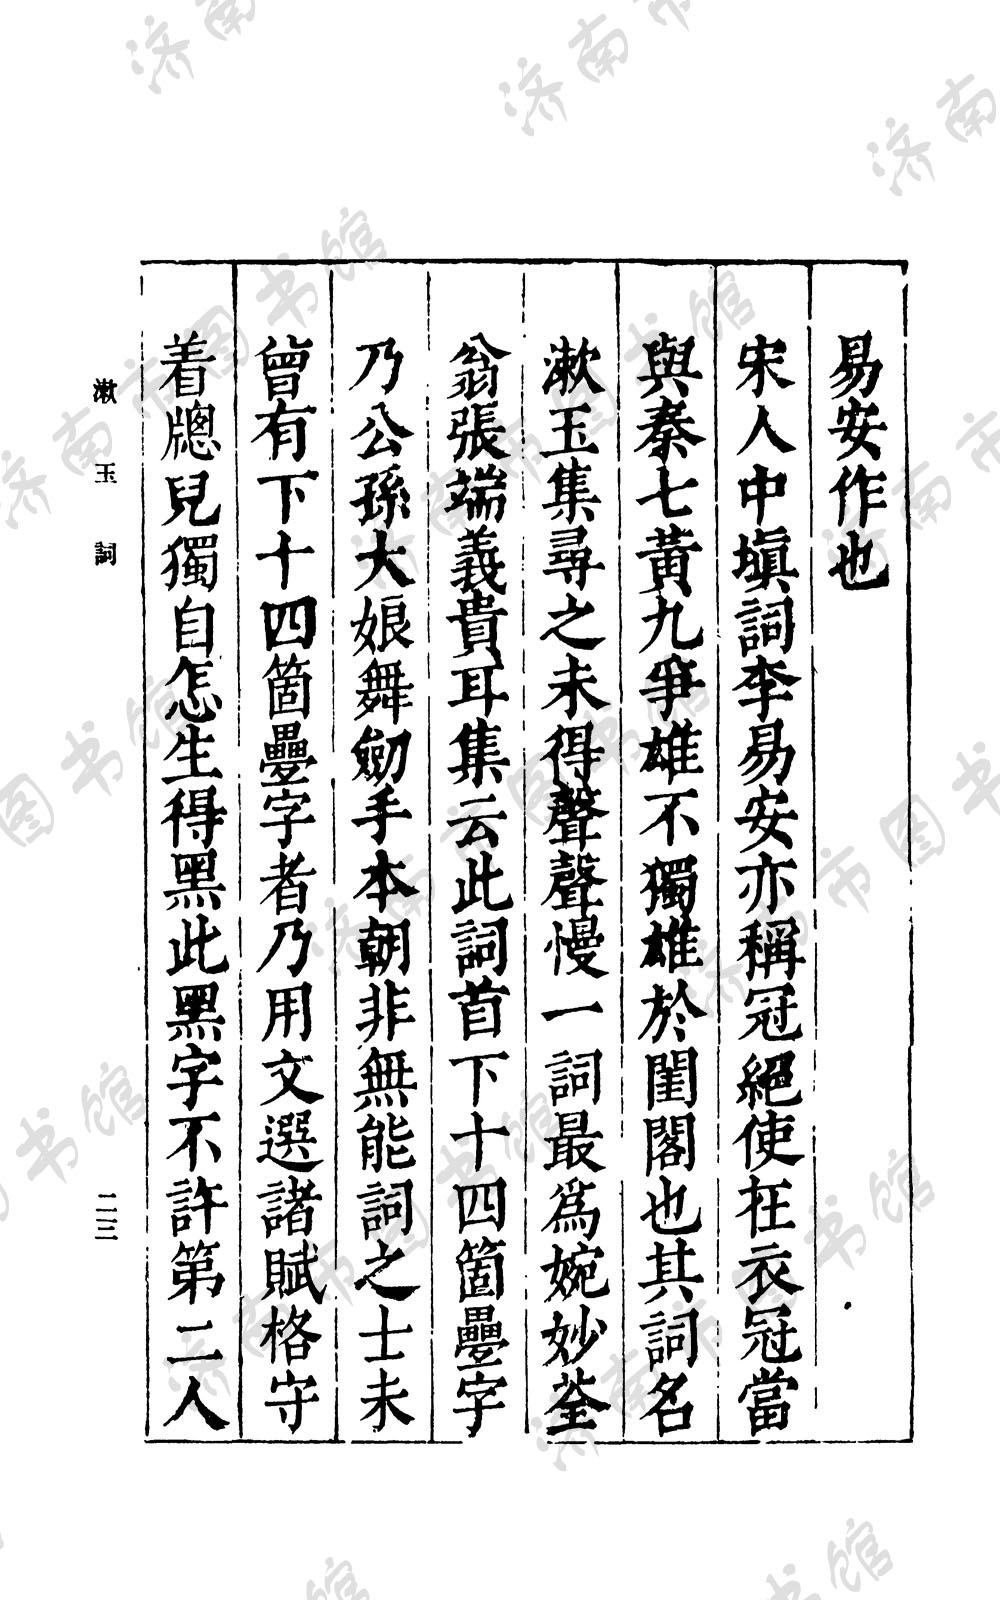 易安作也
宋人中塡詞李易安亦稱冠絕使在衣冠當
與秦七黃九爭雄不獨雄於閨閣也其詞名
漱玉集尋之未得聲聲慢一詞最爲婉妙荃
翁張端義貴耳集云此詞首下十四箇疊字
乃公孫大娘舞劒手本朝非無能詞之士未
曾有下十四箇疊字者乃用文選諸賦格守
着牕兒獨自怎生得黑此黑字不許第二人
漱玉詞
二三
济南市图书馆